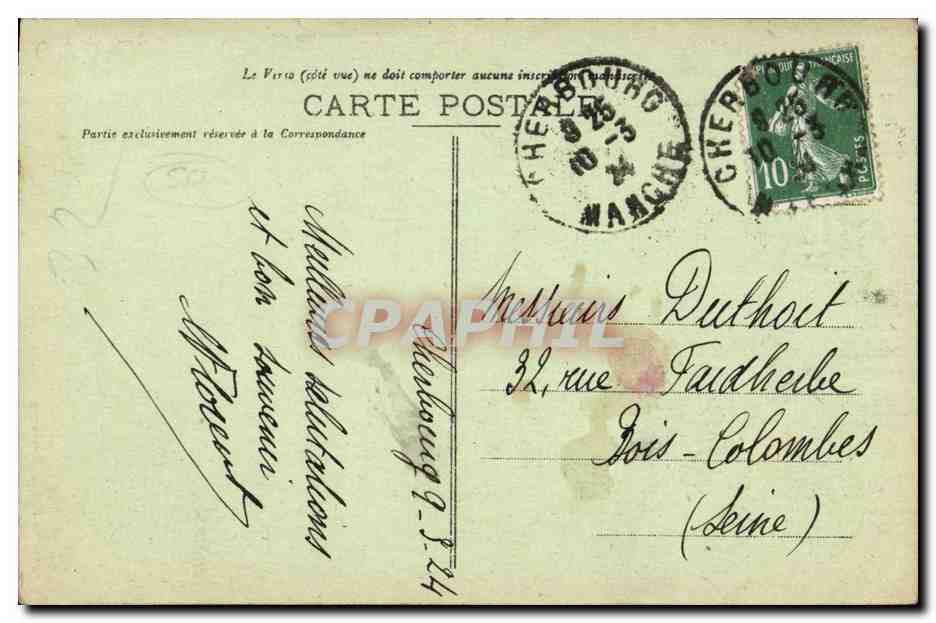 Le Verso (côté vue) ne doit comporter aucune inscription manuscrite
CARTE POSTALE
Partie exclusivement réservée à la Correspondance
CHERBOURG
MANCHE
CHERBOURG
10
POSTES
Meilleures salutations
et bon souvenir
Cherbourg 9-3-24
Messieurs Duthoit
32, rue Faidherbe
Bois-Colombes
(Seine)
CPAPHIL